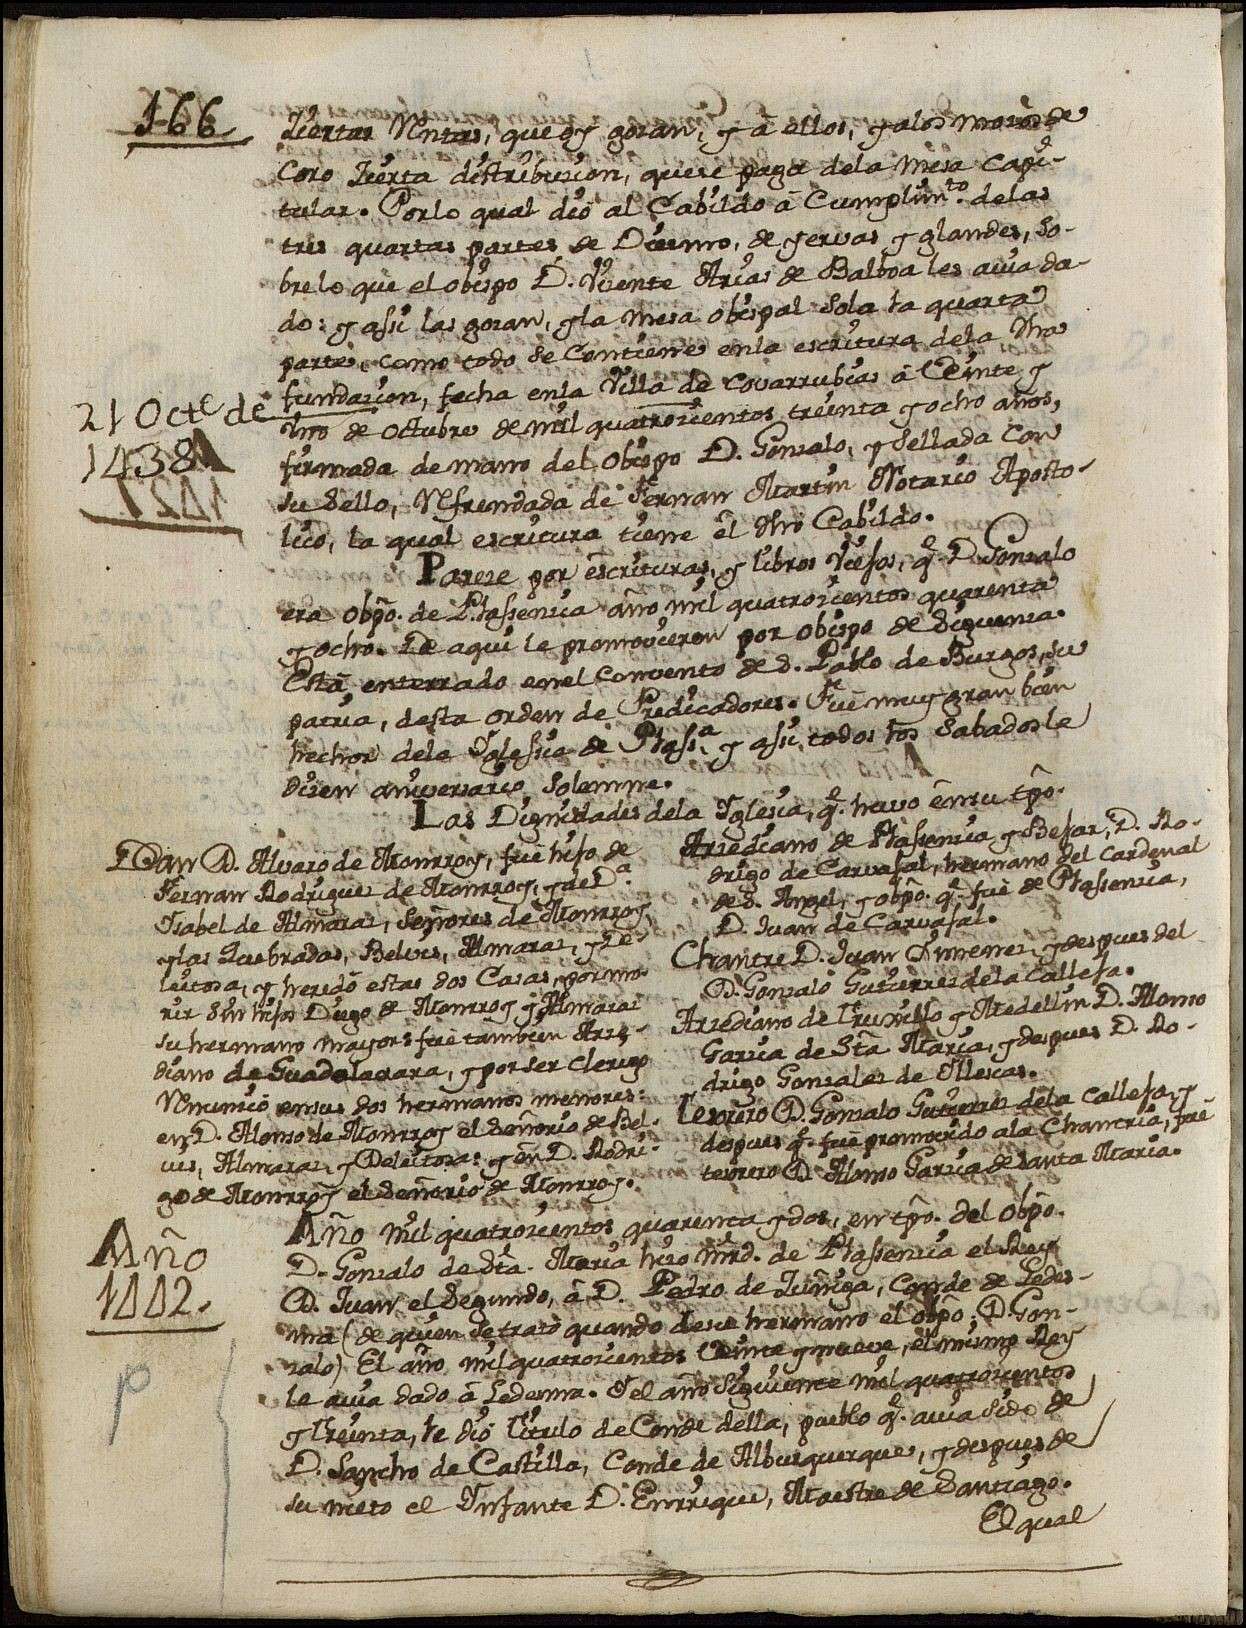 166
Ziertas Rentas, que oy gozan, y à ellos, y alos mozos de
Coro Zierta distribuzion, que se paga dela Mesa Capi-
tular. Por lo qual dió al Cabildo à Cumplim.to delas
tres quartas partes de Diezmo, de yervas y glandes, so-
bre lo que el obispo D. Vizente Arias de Balboa les avia da-
do: y assi las gozan, y la Mesa obispal sola la quarta
parte, como todo se Contiene en la escritura dela dha
fundazion, fecha en la Villa de Covarrubias à Veinte y
uno de octubre de mil quatrozientos treinta y ocho años,
firmada de mano del obispo D. Gonzalo, y sellada Con
su sello, Refrendada de Fernan Martin Notario Aposto-
lico, la qual escritura tiene el dho Cabildo.
21 Oct.e de
1438
1421
Pareze por escrituras, y libros Viejos, q.e D. Gonzalo
era obpõ. de Plassenzia año mil quatrozientos quarenta
y ocho. De aqui le promovieron por obispo de Siguenza.
Está enterrado en el Convento de S. Pablo de Burgos, su
patria, desta orden de Predicadores. Fue muy gran bien
hechor dela Yglesia de Plass.a y assi, todos los Sabados le
dizen aniversario solemne.
Las Dignidades dela Yglesia, q.e huvo en su tpõ.
Dean D. Alvaro de Monrroy, fue hijo de
Fernan Rodriguez de Monrroy, y de D.a
Ysabel de Almaraz, Señores de Monrroy
y las Quebradas, Belvis, Almaraz, y De-
leitosa, y heredó estas dos Casas, por mo-
rir sin hijos Diego de Monrroy y Almaraz
su hermano mayor: fue tambien Arze-
diano de Guadalaxara, y por ser Clerigo
Renunció en sus dos hermanos menores:
en D. Alonso de Monrroy el Señorio de Bel-
vis, Almaraz, y Deleitosa: y en D. Rodri-
go de Monrroy el Señorio de Monrroy.
Arzediano de Plassenzia y Bejar, D. Ro-
drigo de Carvajal, hermano del Cardenal
de S. Angel, y obpõ. q.e fue de Plassenzia,
D. Juan de Carvajal.
Chantre D. Juan Ximenez, y despues del
D. Gonzalo Gutierrez dela Calleja.
Arzediano de Truxillo y Medellin D. Alonso
Garzia de Stâ Maria, y despues D. Ro-
drigo Gonzalez de Illescas.
Tesorero D. Gonzalo Gutierrez dela Calleja, y
despues q.e fue promovido ala Chantria, fue
tesorero D. Alonso Garzia de Santa Maria.
Año
1442.
Año mil quatrozientos quarenta y dos, en tpõ. del Obpõ.
D. Gonzalo de Stâ. Maria hizo mrd. de Plassenzia el Rey
D. Juan el Segundo, à D. Pedro de Zuñiga, Conde de Ledes-
ma (de quien se trató quando de su hermano el obpõ. D. Gon-
zalo) El año mil quatrozientos Veinte y nueve, el mismo Rey
le avia dado à Ledesma. Y el año Siguiente mil quatrozientos
y treinta, le dió título de Conde della, pueblo q.e avia sido de
D. Sancho de Castilla, Conde de Alburquerque, y despues de
su nieto el Infante D. Enrrique, Maestre de Santiago.
El qual
p